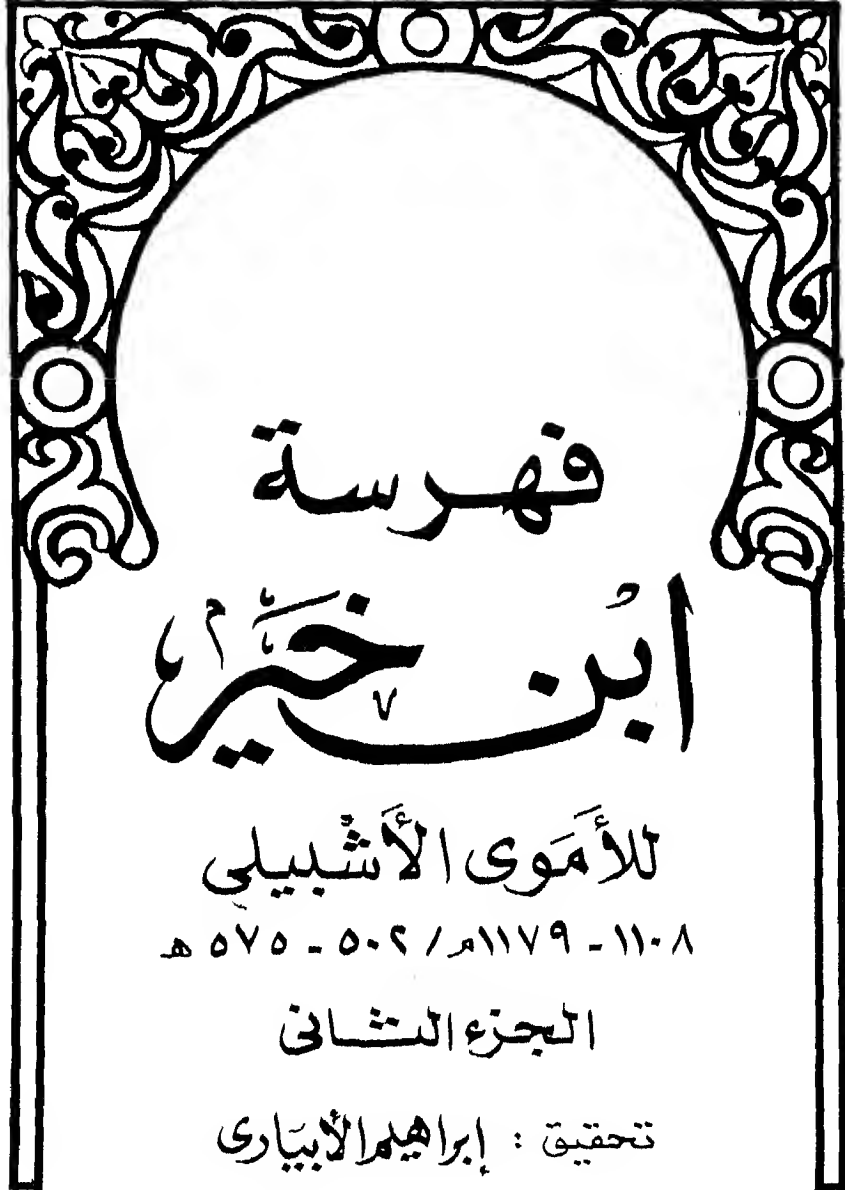 فهرسة
ابْن خَيْر
للأَمَوى الأَشْبيلى
١١٠٨ - ١١٧٩م / ٥٠٢ - ٥٧٥ هـ
الجزء الثانى
تحقيق : إبراهيم الأبيَارى